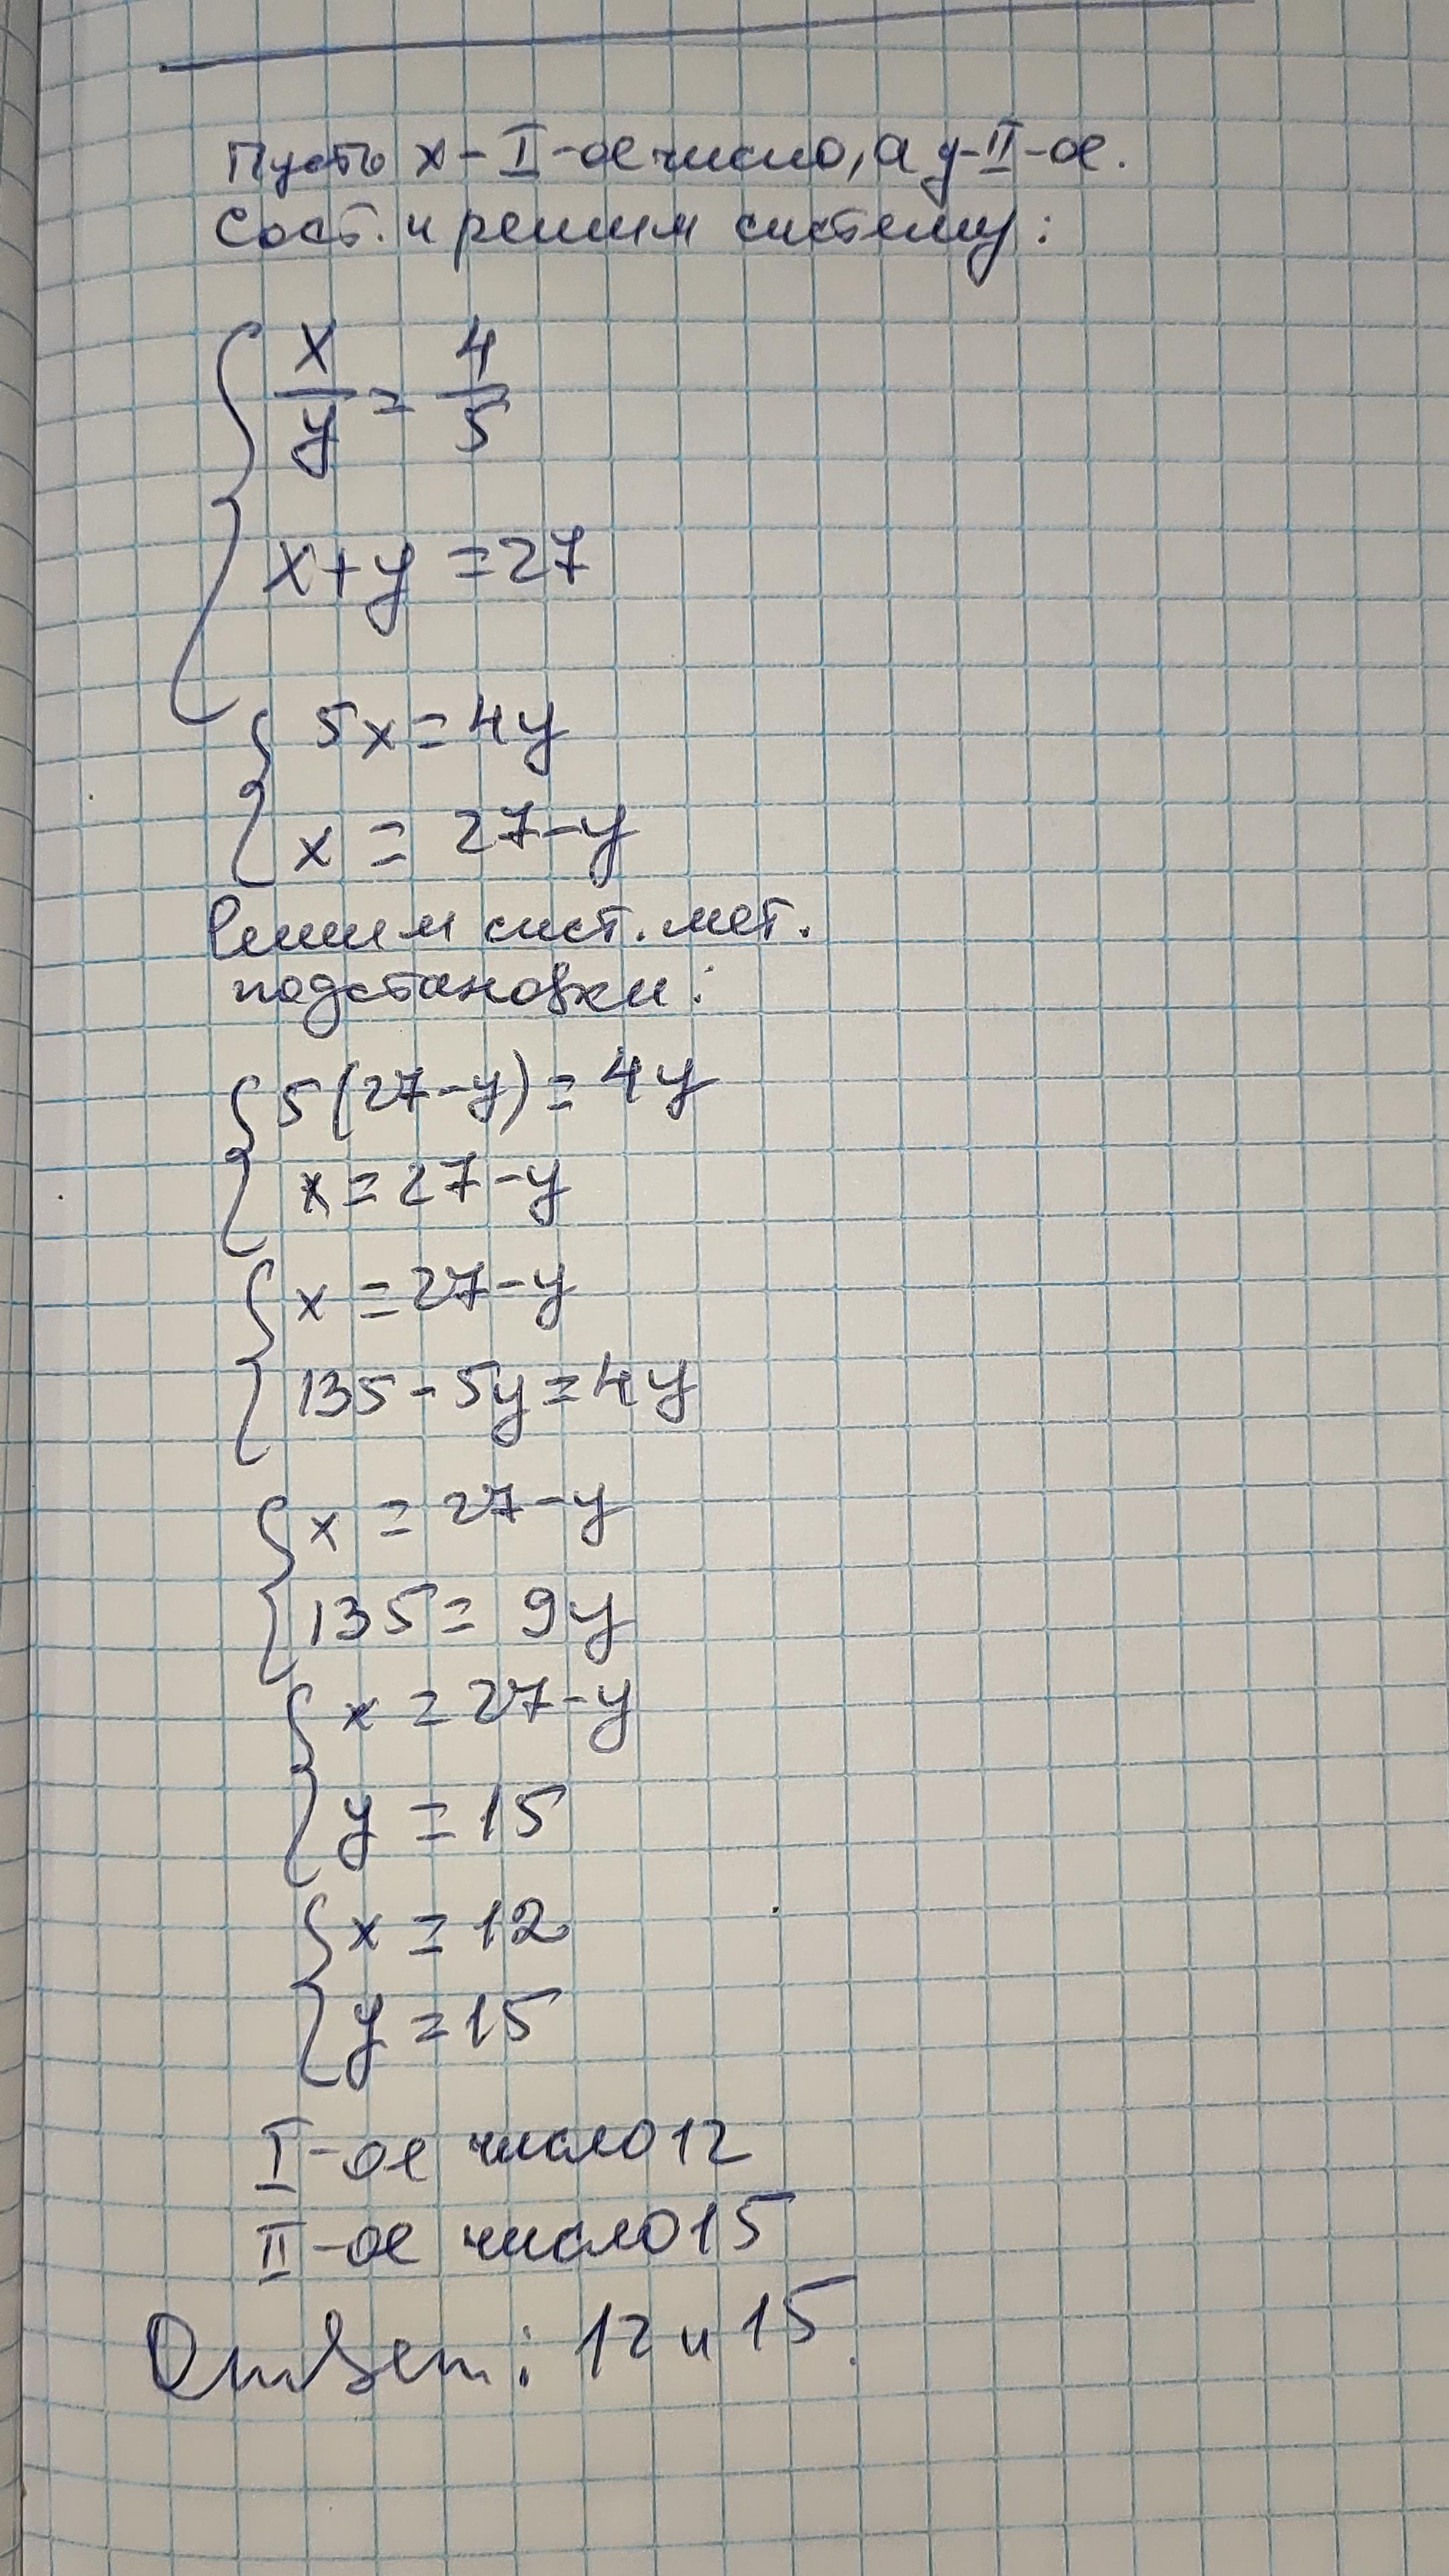 Пусть x - I-ое число, а y - II-ое.
Сост. и решим систему:
{ x/y = 4/5
x + y = 27
{ 5x = 4y
x = 27 - y
Решим сист. мет.
подстановки:
{ 5(27 - y) = 4y
x = 27 - y
{ x = 27 - y
135 - 5y = 4y
{ x = 27 - y
135 = 9y
{ x = 27 - y
y = 15
{ x = 12
y = 15
I-ое число 12
II-ое число 15
Ответ: 12 и 15.